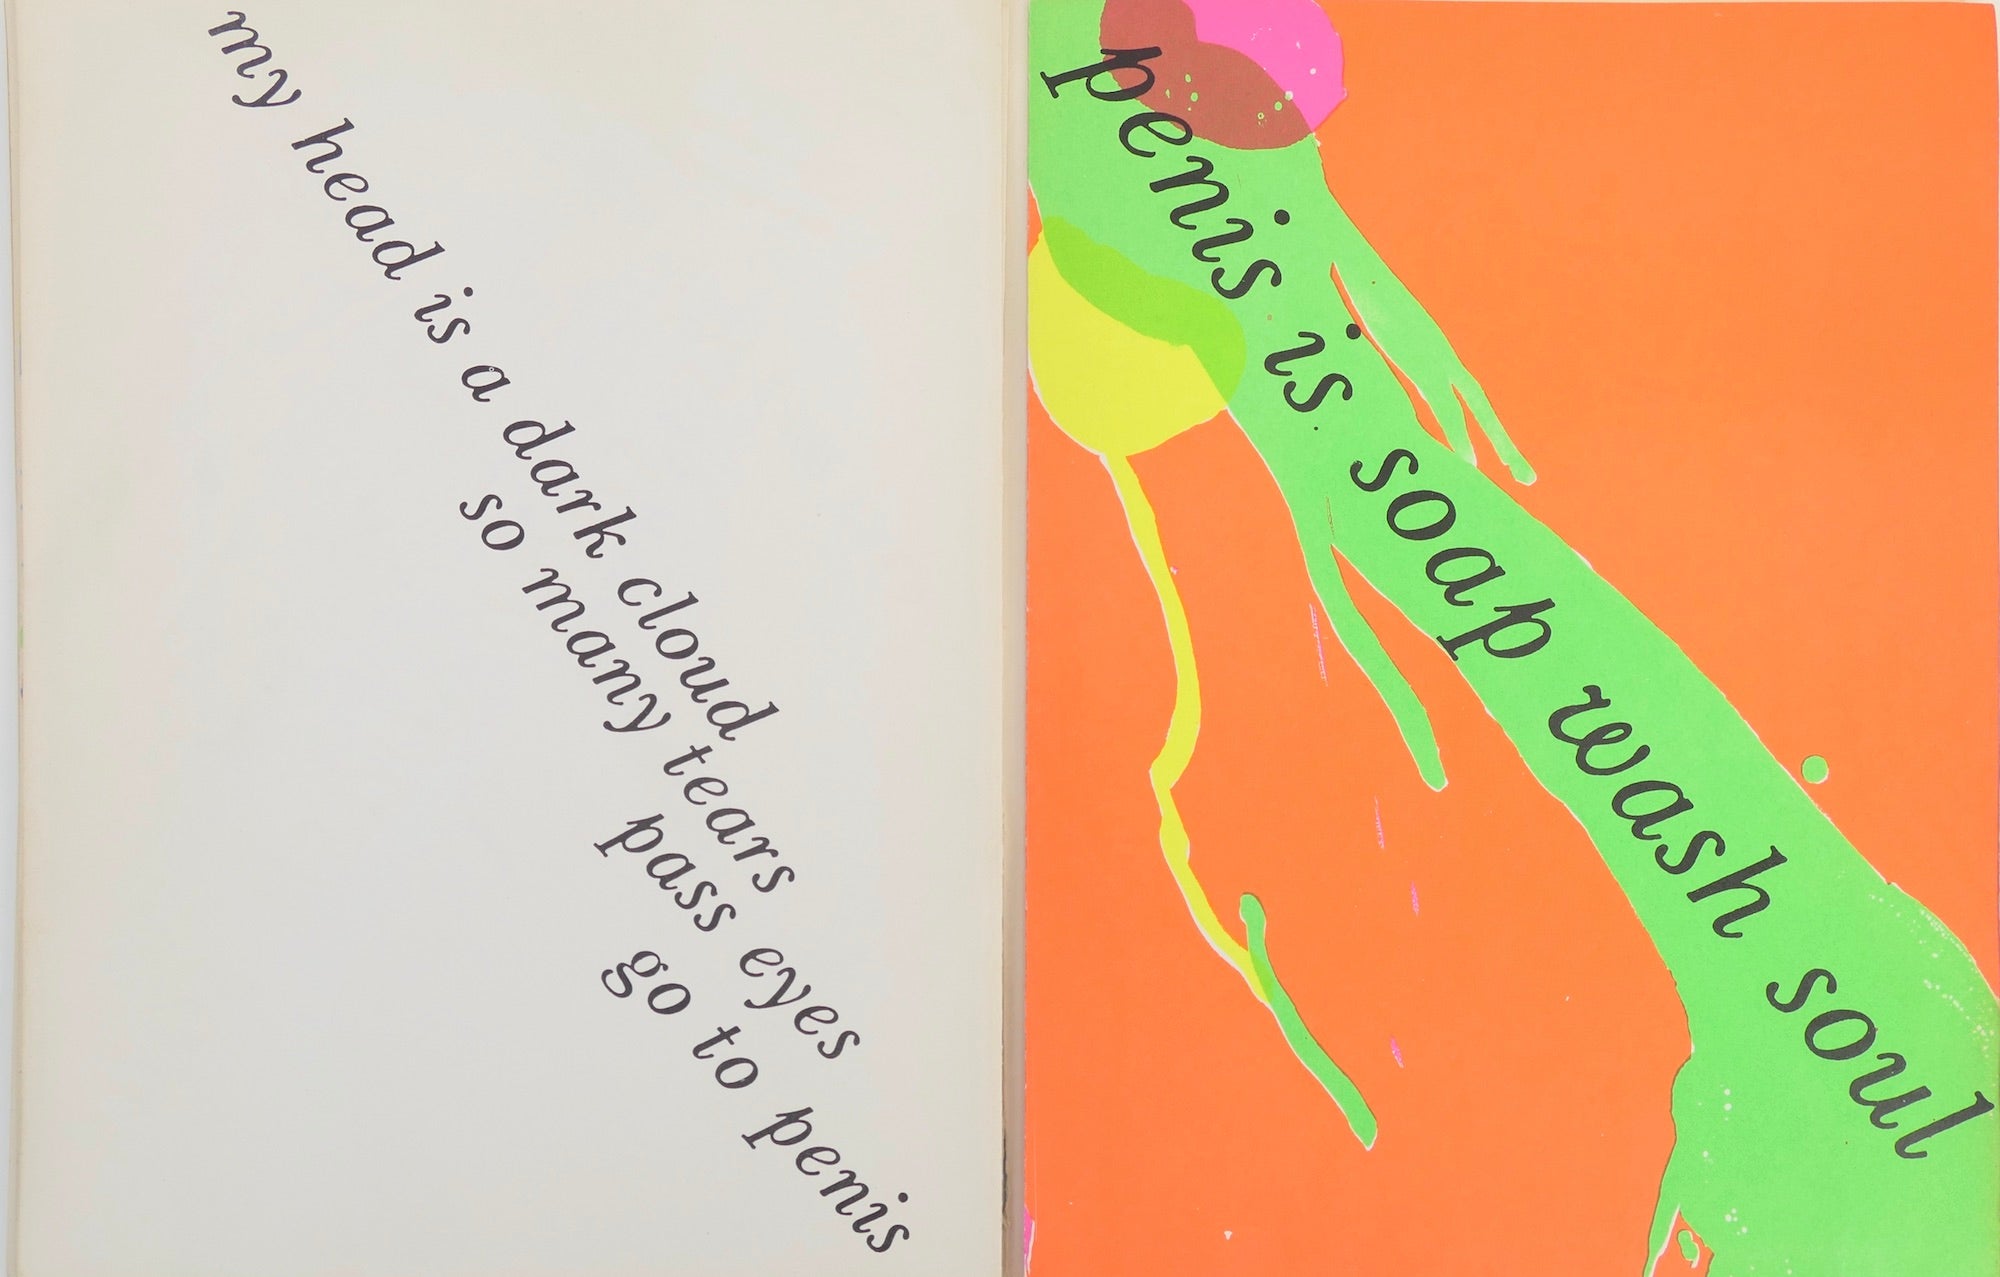 my head is a dark cloud
so many tears
pass eyes
go to penis
penis is soap wash soul